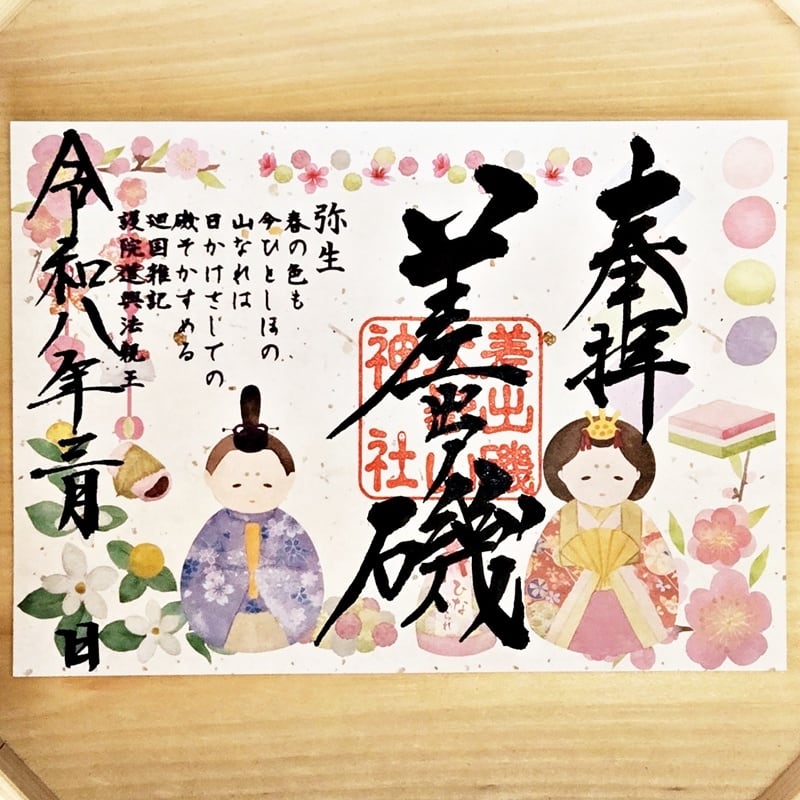 奉拝
差出ノ磯
差出磯
大嶽山
神社
弥生
春の色も
今ひとしほの
山なれは
日かけさしての
磯そかすめる
廻国雑記
護院道興法親王
令和八年三月 日